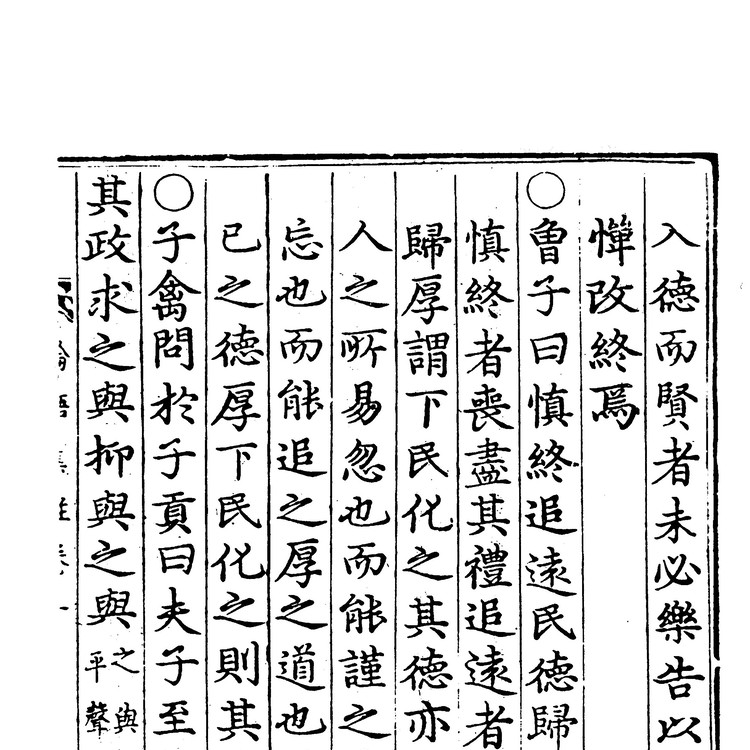 入德而賢者未必樂告以
憚改終焉
○曾子曰慎終追遠民德歸
慎終者喪盡其禮追遠者
歸厚謂下民化之其德亦
人之所易忽也而能謹之
忘也而能追之厚之道也
已之德厚下民化之則其
○子禽問於子貢曰夫子至
其政求之與抑與之與之與平聲